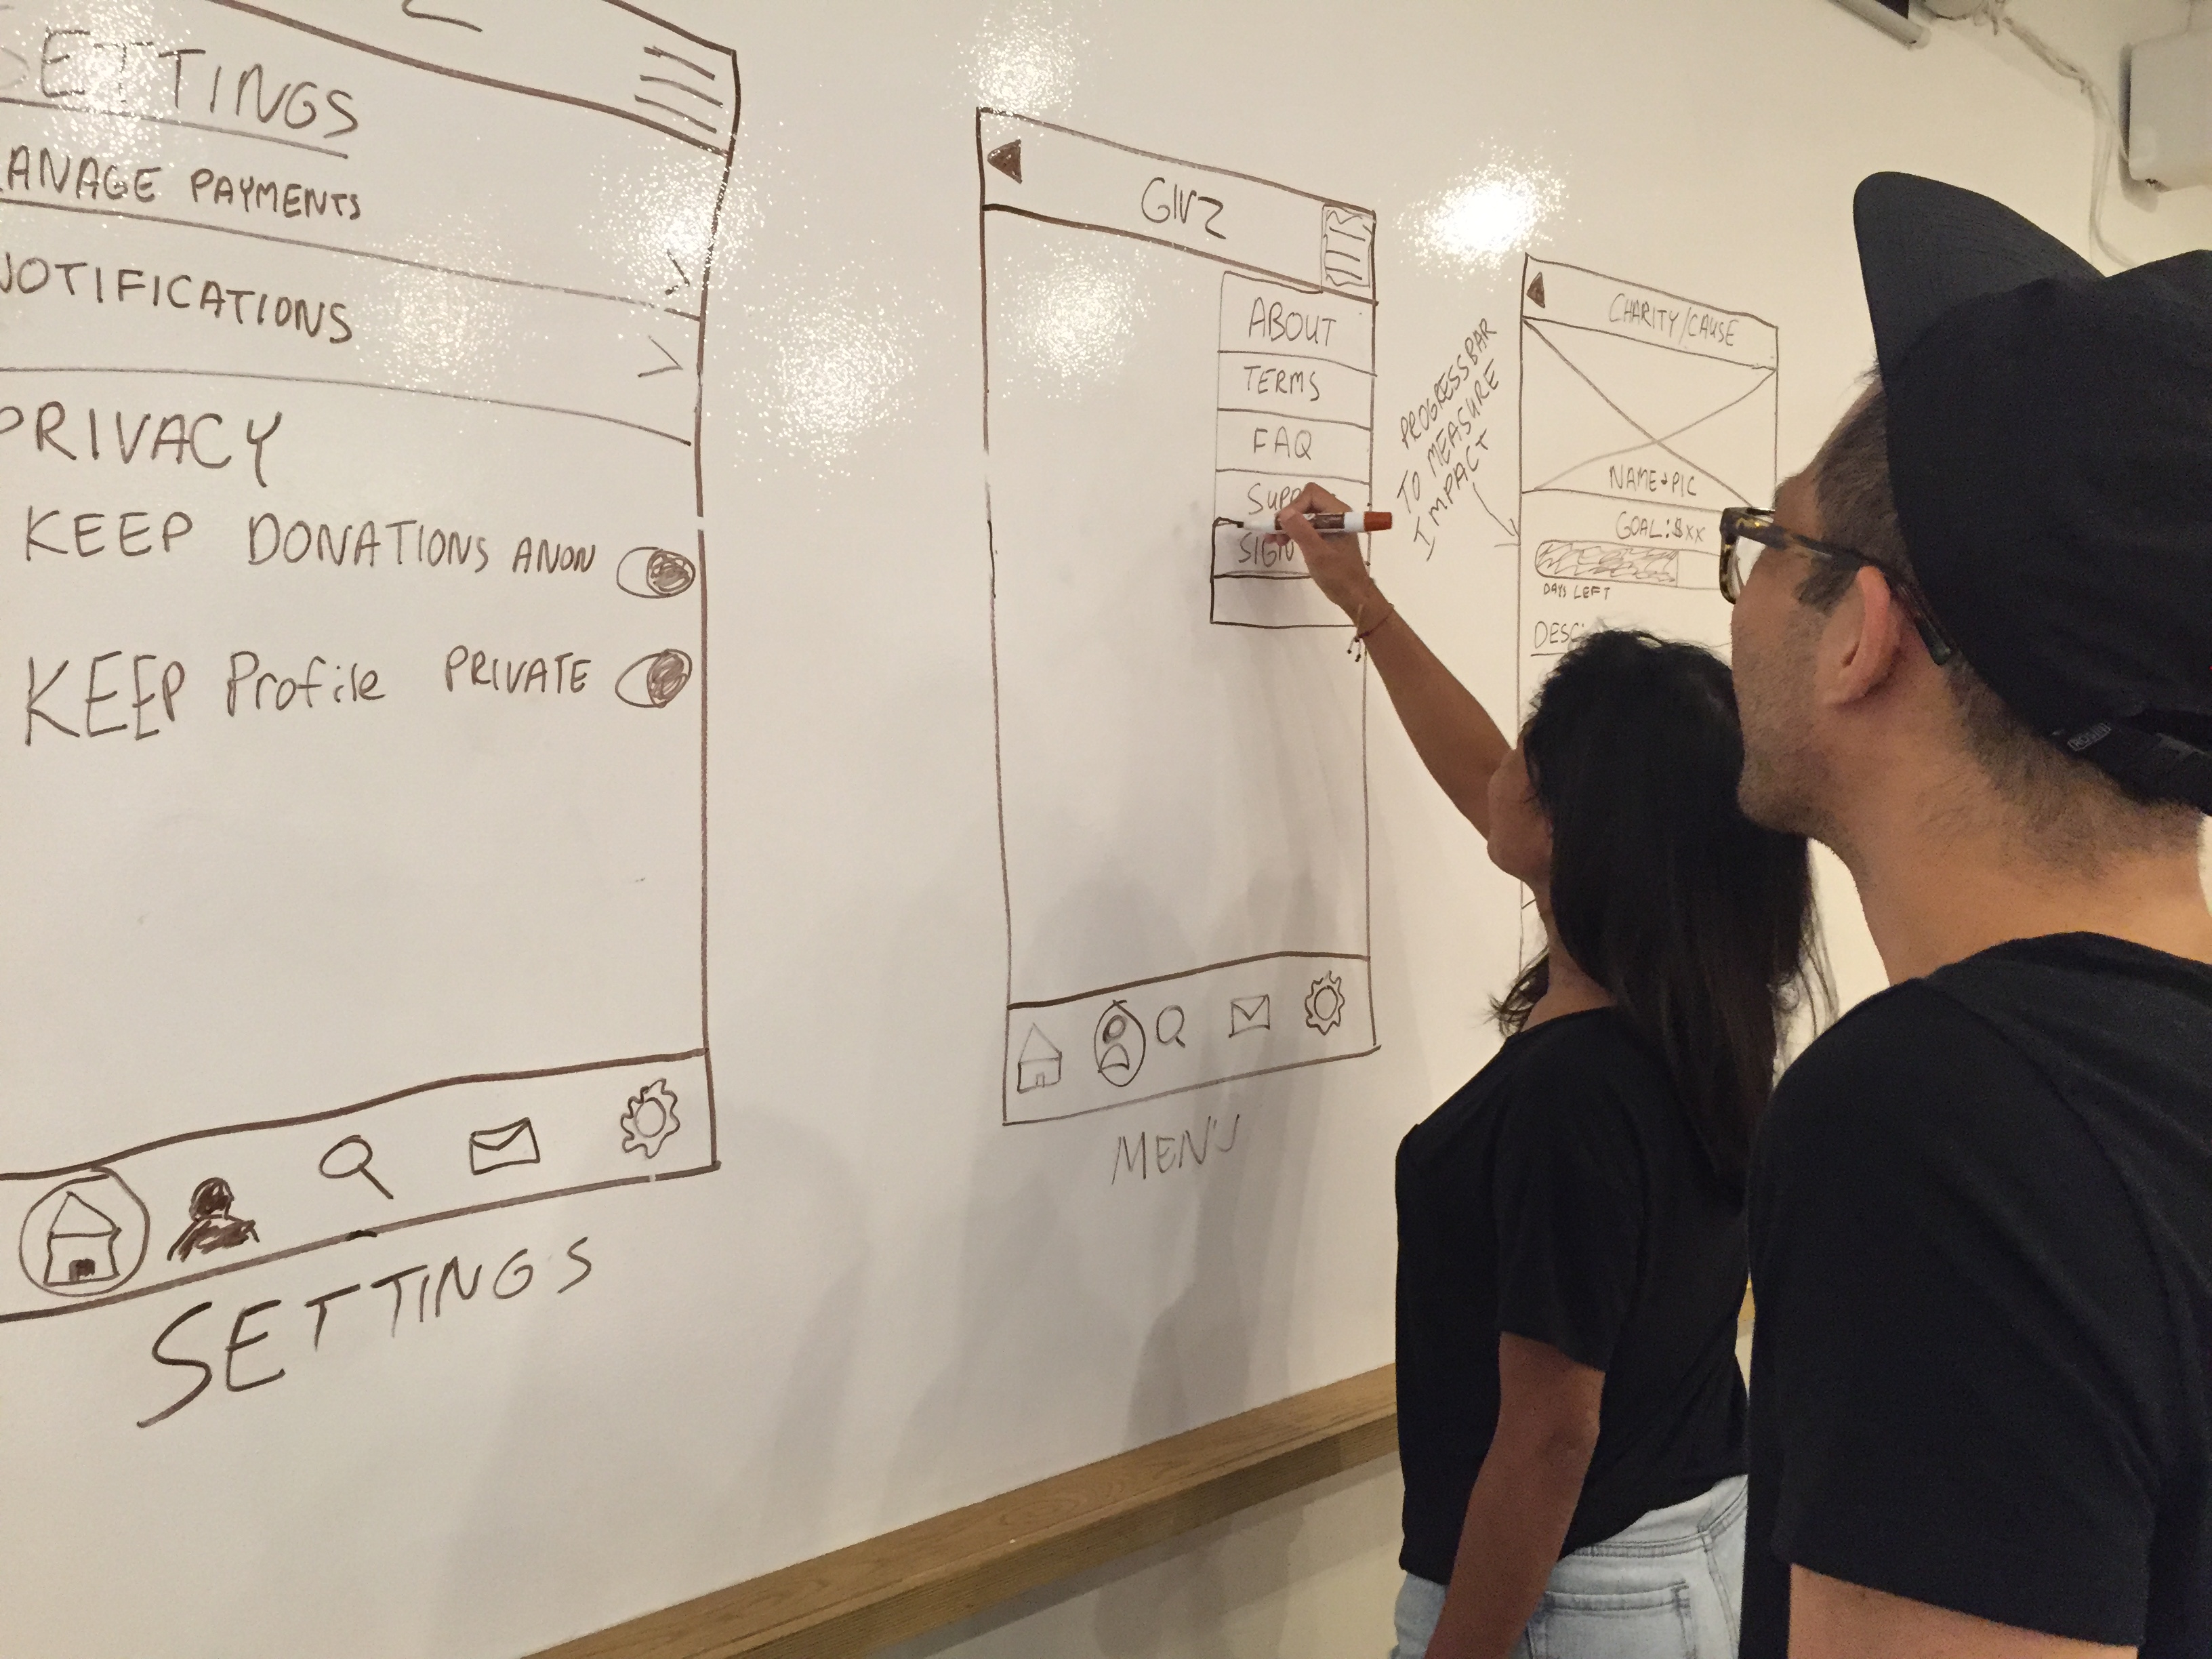 SETTINGS
ANAGE PAYMENTS
NOTIFICATIONS
PRIVACY
KEEP DONATIONS ANON
KEEP Profile PRIVATE
SETTINGS
GIVZ
ABOUT
TERMS
FAQ
SUPP
SIGN
MENU
PROGRESS BAR
TO MEASURE
IMPACT
CHARITY/CAUSE
NAME+PIC
GOAL:$XX
DAYS LEFT
DESC